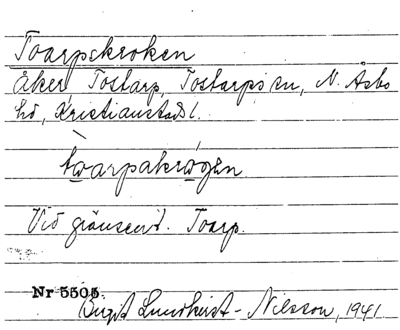 Toarpskroken
Åker, Tostarp, Tostarps sn, N. Åsbo
hd, Kristianstads l.
toarpakrogen
Vid gränsen t. Toarp.
Nr 5505.
Birgit Lundkvist-Nilsson, 1941.